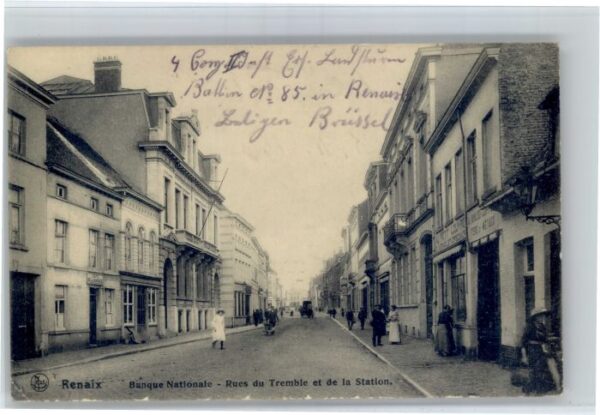 Ers. Landsturm
Battln No 85. in Renaix
Belgien Brüssel
Renaix Banque Nationale - Rues du Tremble et de la Station.